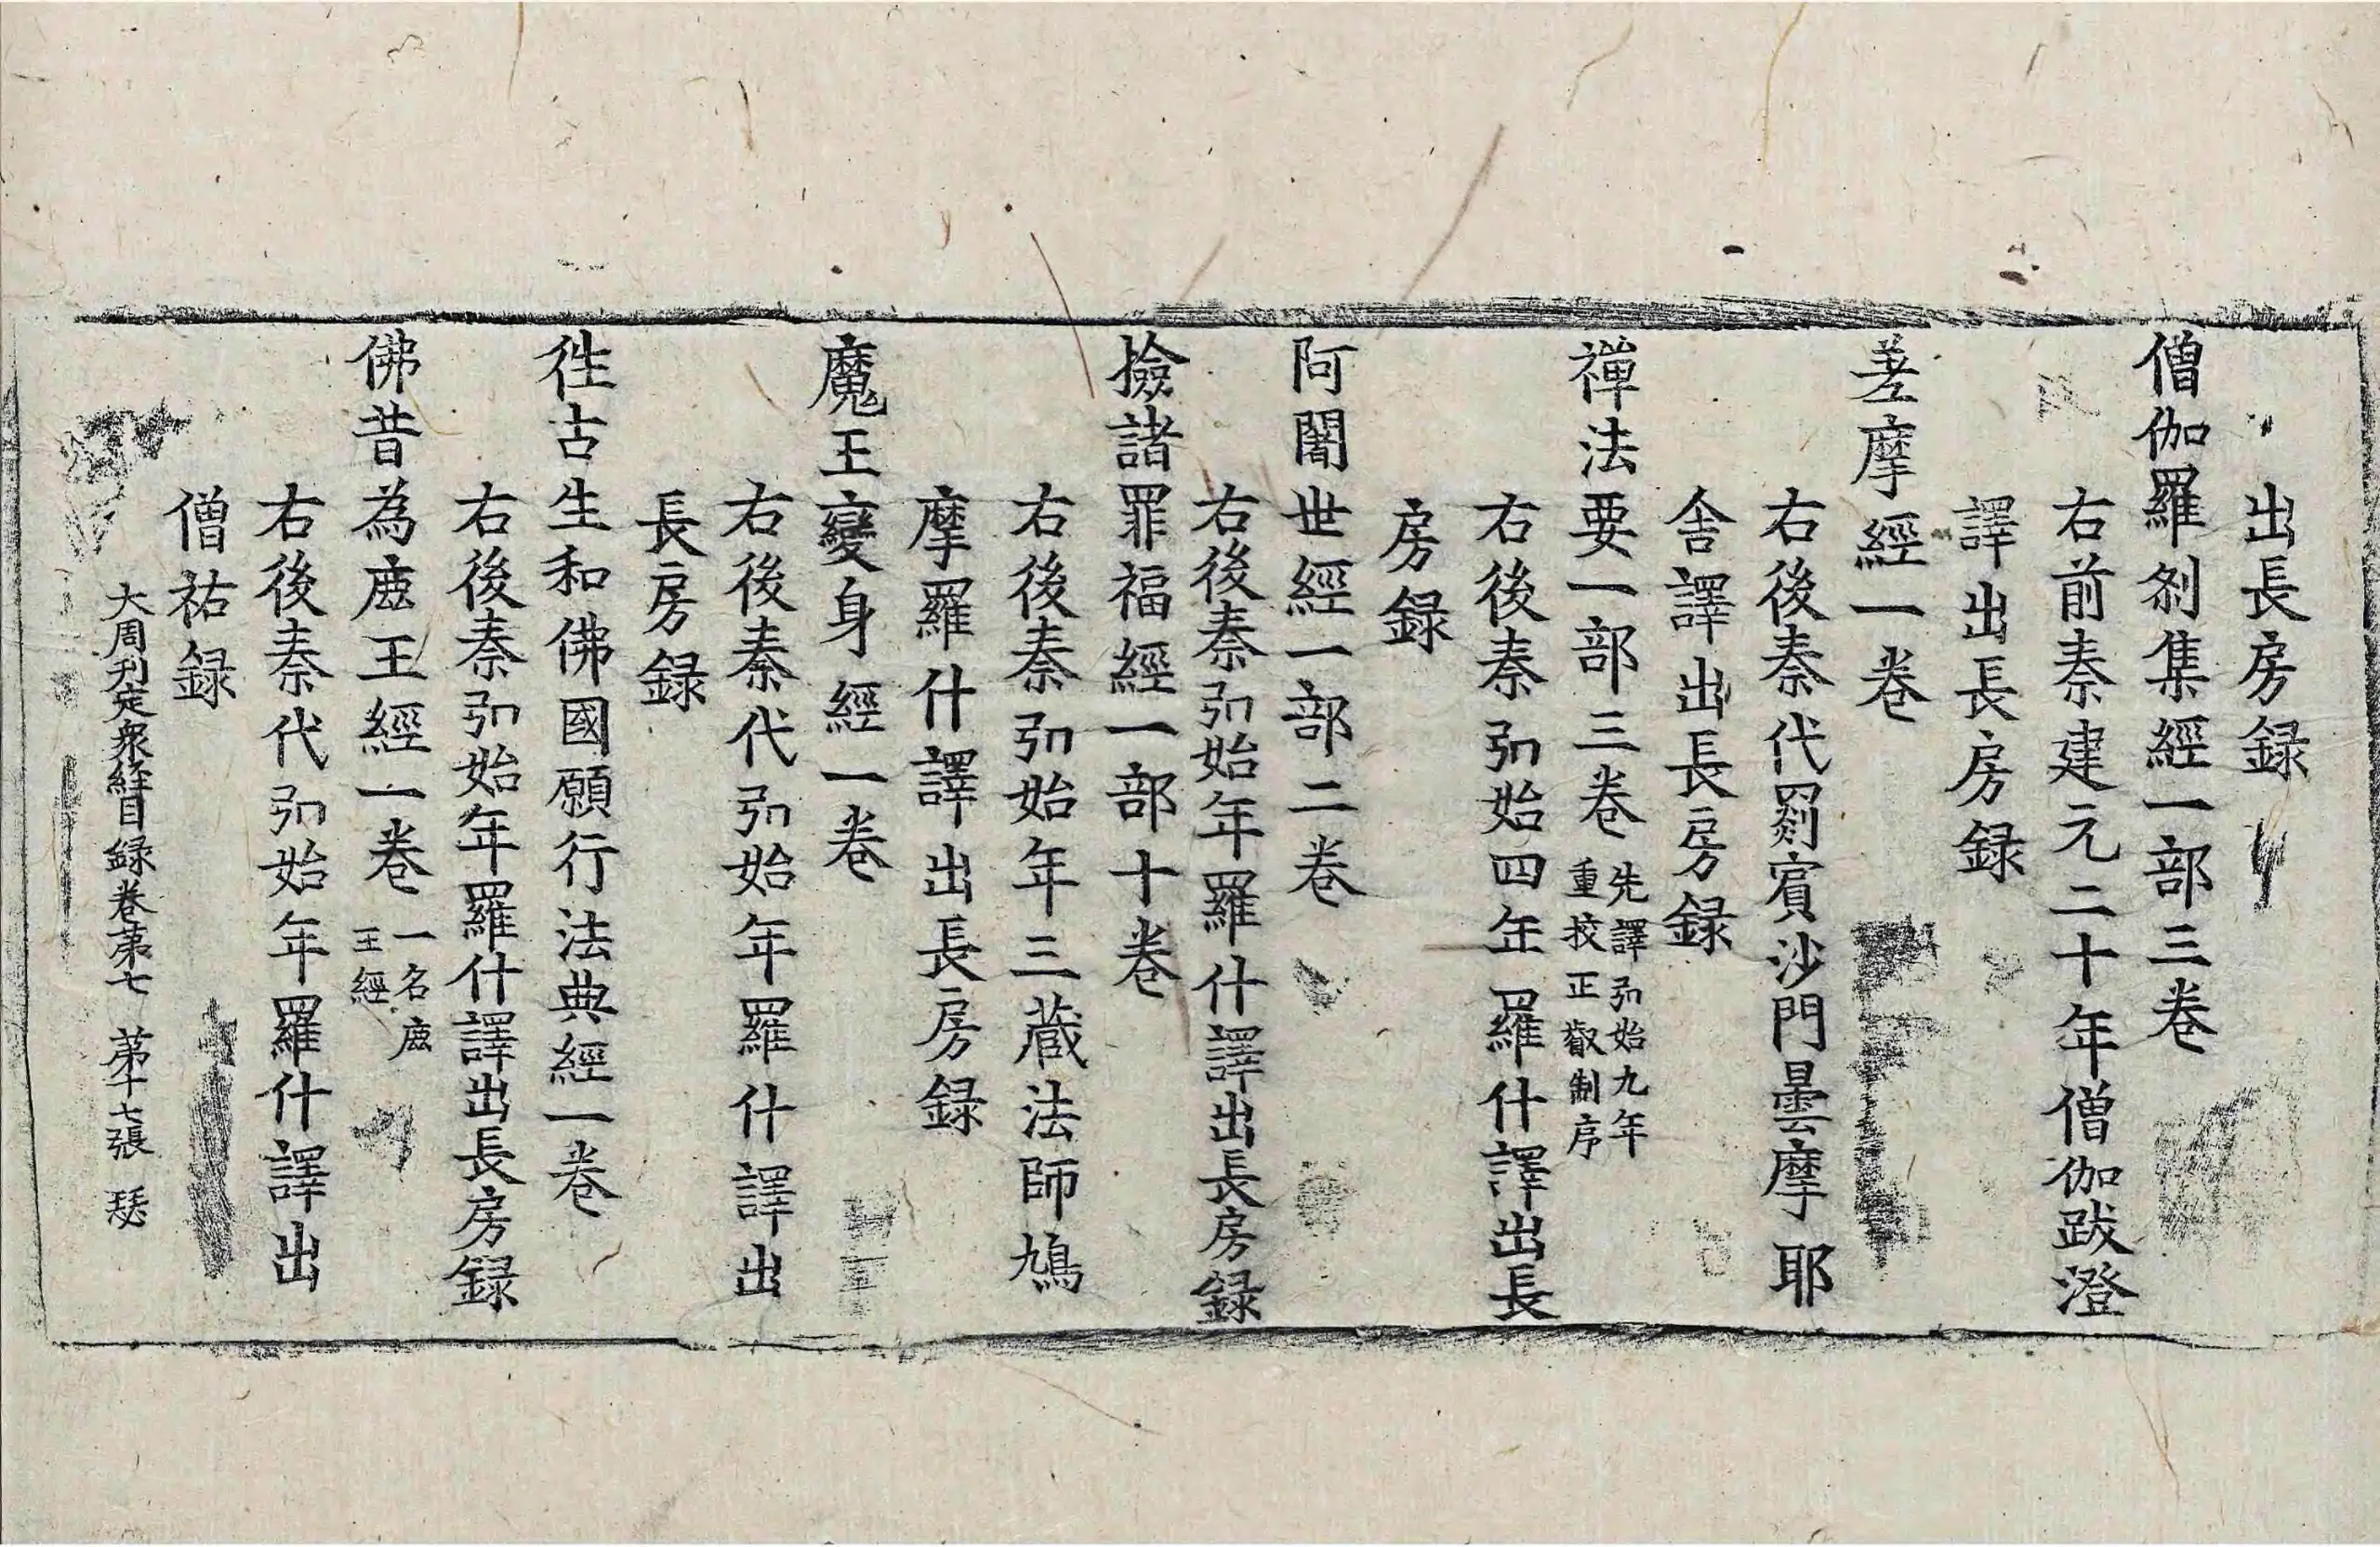 出長房録
僧伽羅刹集經一部三卷
右前秦建元二十年僧伽跋澄
譯出長房録
差摩經一卷
右後秦代罽賓沙門曇摩耶
舎譯出長房録
禪法要一部三卷 先譯弘始九年
重挍正叡制序
右後秦弘始四年羅什譯出長
房録
阿闍世經一部二卷
右後秦弘始年羅什譯出長房録
撿諸罪福經一部十卷
右後秦弘始年三藏法師鳩
摩羅什譯出長房録
魔王變身經一卷
右後秦代弘始年羅什譯出
長房録
徃古生和佛國願行法典經一卷
右後秦弘始年羅什譯出長房録
佛昔為鹿王經一卷 一名鹿
王經
右後秦代弘始年羅什譯出
僧祐録
大周刊定衆經目録卷第七 第十七張 瑟